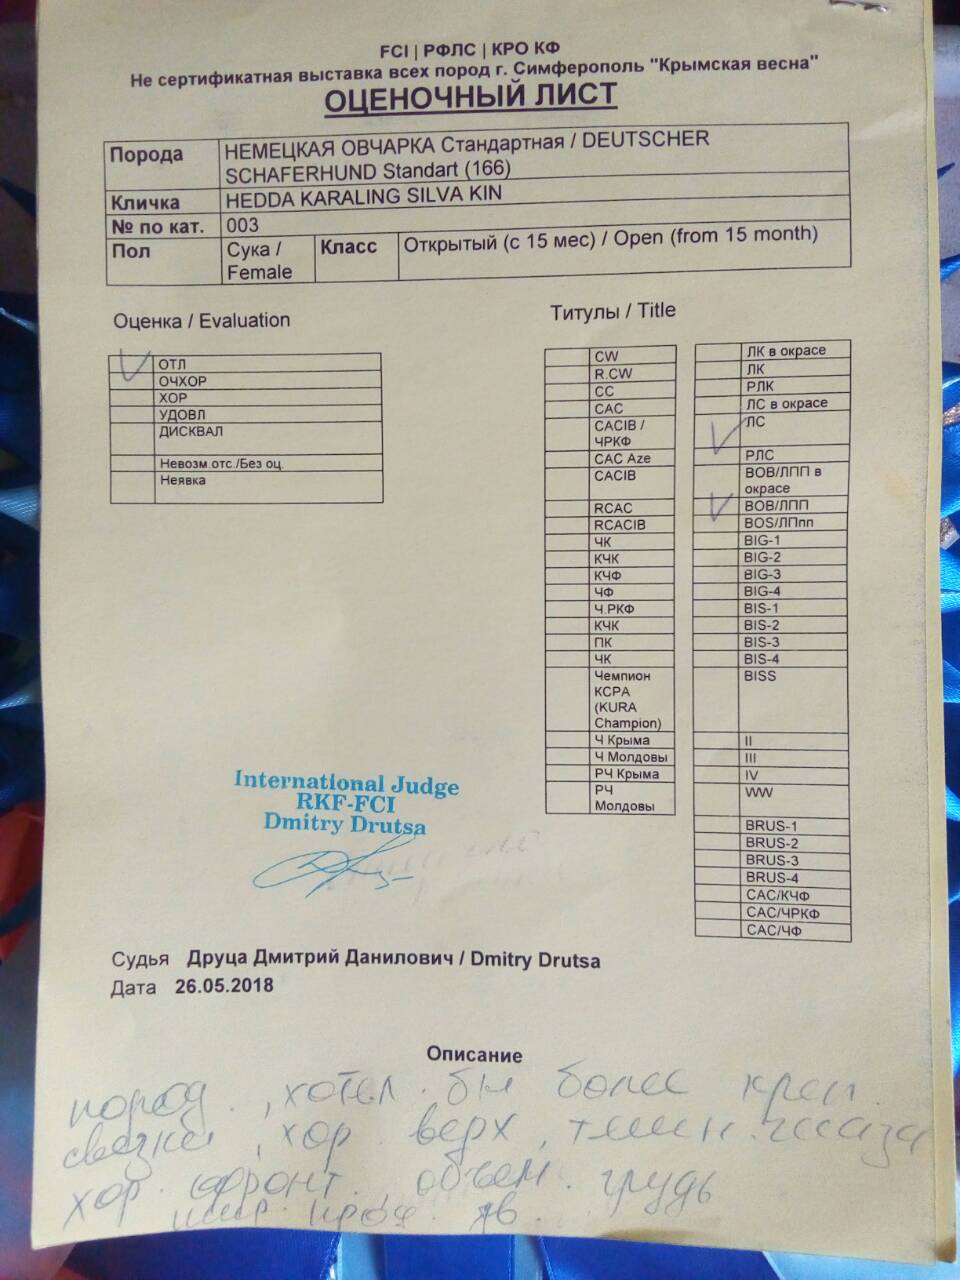 FCI | РФЛС | КРО КФ
Не сертификатная выставка всех пород г. Симферополь "Крымская весна"
ОЦЕНОЧНЫЙ ЛИСТ
Порода НЕМЕЦКАЯ ОВЧАРКА Стандартная / DEUTSCHER
SCHAFERHUND Standart (166)
Кличка HEDDA KARALING SILVA KIN
№ по кат. 003
Пол Сука / Female Класс Открытый (с 15 мес) / Open (from 15 month)
Оценка / Evaluation
ОТЛ
ОЧХОР
ХОР
УДОВЛ
ДИСКВАЛ
Невозм.отс./Без оц.
Неявка
Титулы / Title
CW
R.CW
CC
CAC
CACIB /
ЧРКФ
CAC Aze
CACIB
RCAC
RCACIB
ЧК
КЧК
КЧФ
ЧФ
Ч.РКФ
КЧК
ПК
ЧК
Чемпион
КСРА
(KURA
Champion)
Ч Крыма
Ч Молдовы
РЧ Крыма
РЧ
Молдовы
ЛК в окрасе
ЛК
РЛК
ЛС в окрасе
ЛС
РЛС
BOB/ЛПП в
окрасе
BOB/ЛПП
BOS/ЛПпп
BIG-1
BIG-2
BIG-3
BIG-4
BIS-1
BIS-2
BIS-3
BIS-4
BISS
II
III
IV
VVV
BRUS-1
BRUS-2
BRUS-3
BRUS-4
CAC/КЧФ
CAC/ЧРКФ
CAC/ЧФ
International Judge
RKF-FCI
Dmitry Drutsa
Судья Друца Дмитрий Данилович / Dmitry Drutsa
Дата 26.05.2018
Описание
пород., хотел. бы более креп.
связки, хор верх, темн. глаза
хор. фронт. объем. грудь
прод. дв.